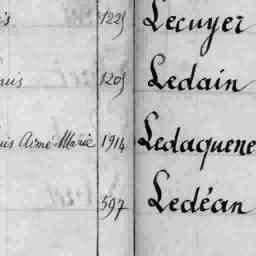 is 1225 Lecuyer
uis 1205 Ledain
uis Aimé Marie 1914 Ledaguene
597 Ledéan